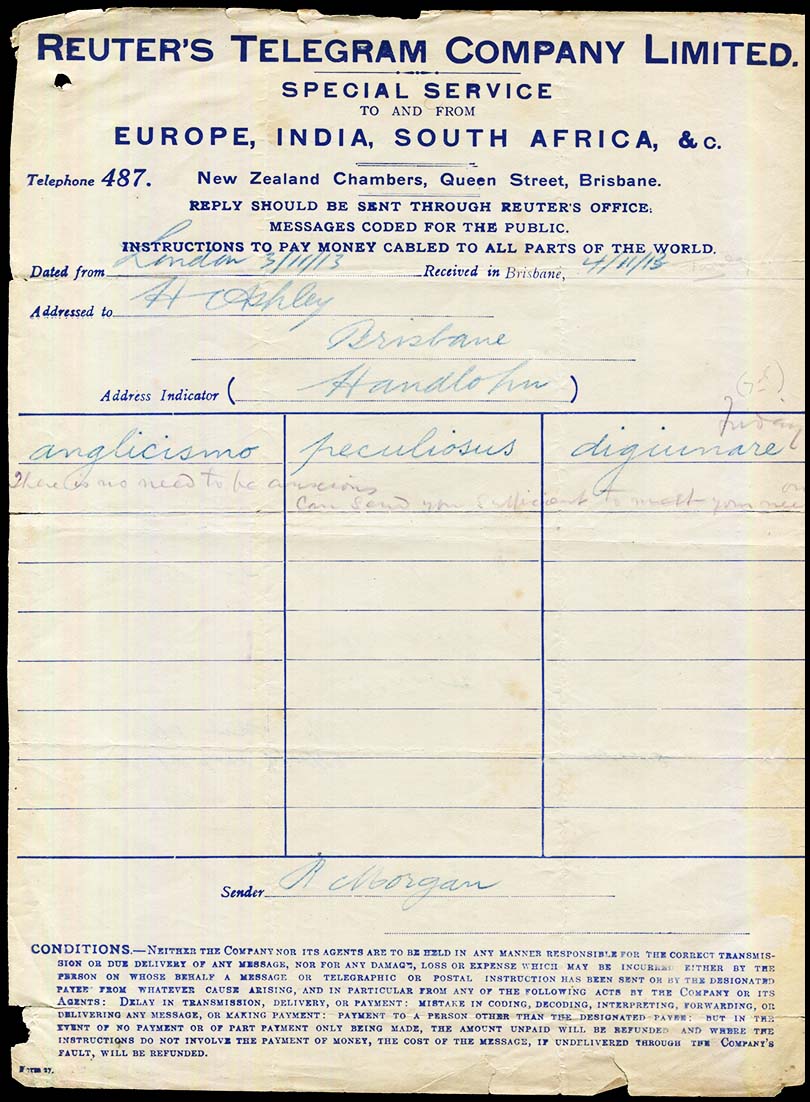 REUTER'S TELEGRAM COMPANY LIMITED.
SPECIAL SERVICE
TO AND FROM
EUROPE, INDIA, SOUTH AFRICA, & C.
Telephone 487. New Zealand Chambers, Queen Street, Brisbane.
REPLY SHOULD BE SENT THROUGH REUTER'S OFFICE.
MESSAGES CODED FOR THE PUBLIC.
INSTRUCTIONS TO PAY MONEY CABLED TO ALL PARTS OF THE WORLD.
Dated from London 3/11/13 Received in Brisbane, 4/11/13
Addressed to H C Ashley
Brisbane
Address Indicator (Handlohn)
anglicismo peculiosus digiunare
There is no need to be anxious
Can send you sufficient to meet your
Sender R Morgan
CONDITIONS.—NEITHER THE COMPANY NOR ITS AGENTS ARE TO BE HELD IN ANY MANNER RESPONSIBLE FOR THE CORRECT TRANSMIS-
SION OR DUE DELIVERY OF ANY MESSAGE, NOR FOR ANY DAMAGE, LOSS OR EXPENSE WHICH MAY BE INCURRED EITHER BY THE
PERSON ON WHOSE BEHALF A MESSAGE OR TELEGRAPHIC OR POSTAL INSTRUCTION HAS BEEN SENT OR BY THE DESIGNATED
PAYEE FROM WHATEVER CAUSE ARISING, AND IN PARTICULAR FROM ANY OF THE FOLLOWING ACTS BY THE COMPANY OR ITS
AGENTS: DELAY IN TRANSMISSION, DELIVERY, OR PAYMENT: MISTAKE IN CODING, DECODING, INTERPRETING, FORWARDING, OR
DELIVERING ANY MESSAGE, OR MAKING PAYMENT: PAYMENT TO A PERSON OTHER THAN THE DESIGNATED PAYEE: BUT IN THE
EVENT OF NO PAYMENT OR OF PART PAYMENT ONLY BEING MADE, THE AMOUNT UNPAID WILL BE REFUNDED AND WHERE THE
INSTRUCTIONS DO NOT INVOLVE THE PAYMENT OF MONEY, THE COST OF THE MESSAGE, IF UNDELIVERED THROUGH THE COMPANY'S
FAULT, WILL BE REFUNDED.
Form 27.